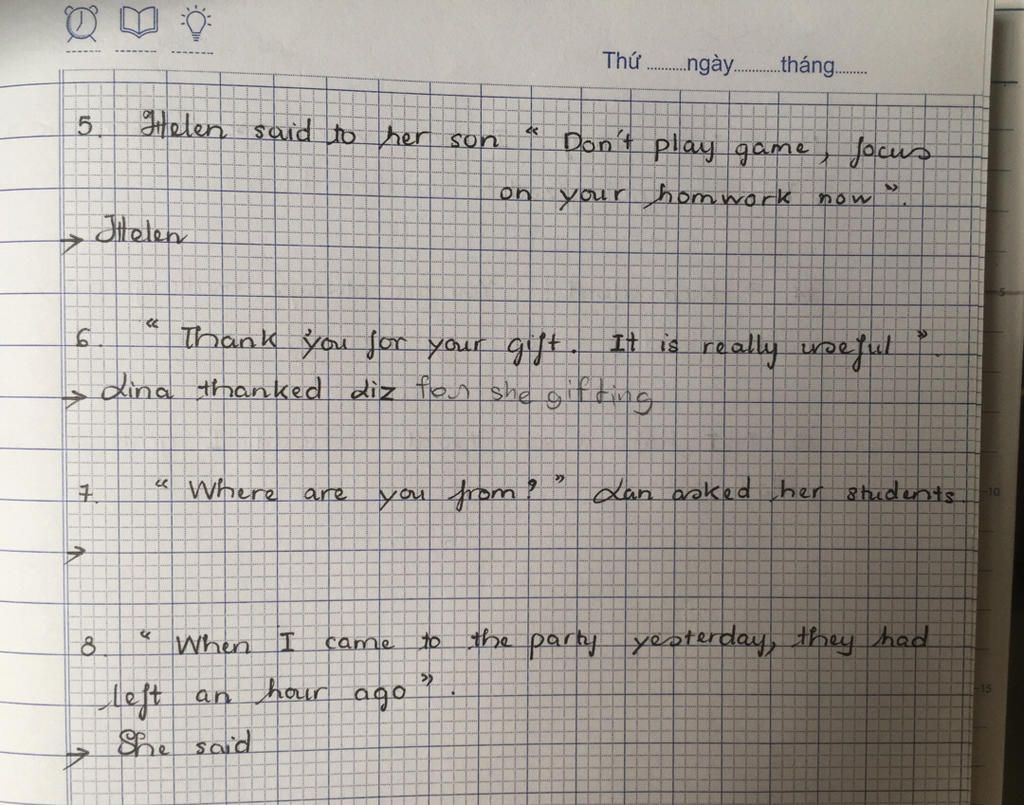 Thứ ..........ngày............tháng........
5. Helen said to her son " Don't play game, focus
on your homwork now ".
→ Helen
6. " Thank you for your gift. It is really useful ".
→ Lina thanked Liz for she gifting
7. " Where are you from? " Lan asked her students
→
8. " When I came to the party yesterday, they had
left an hour ago ".
→ She said
5
10
15